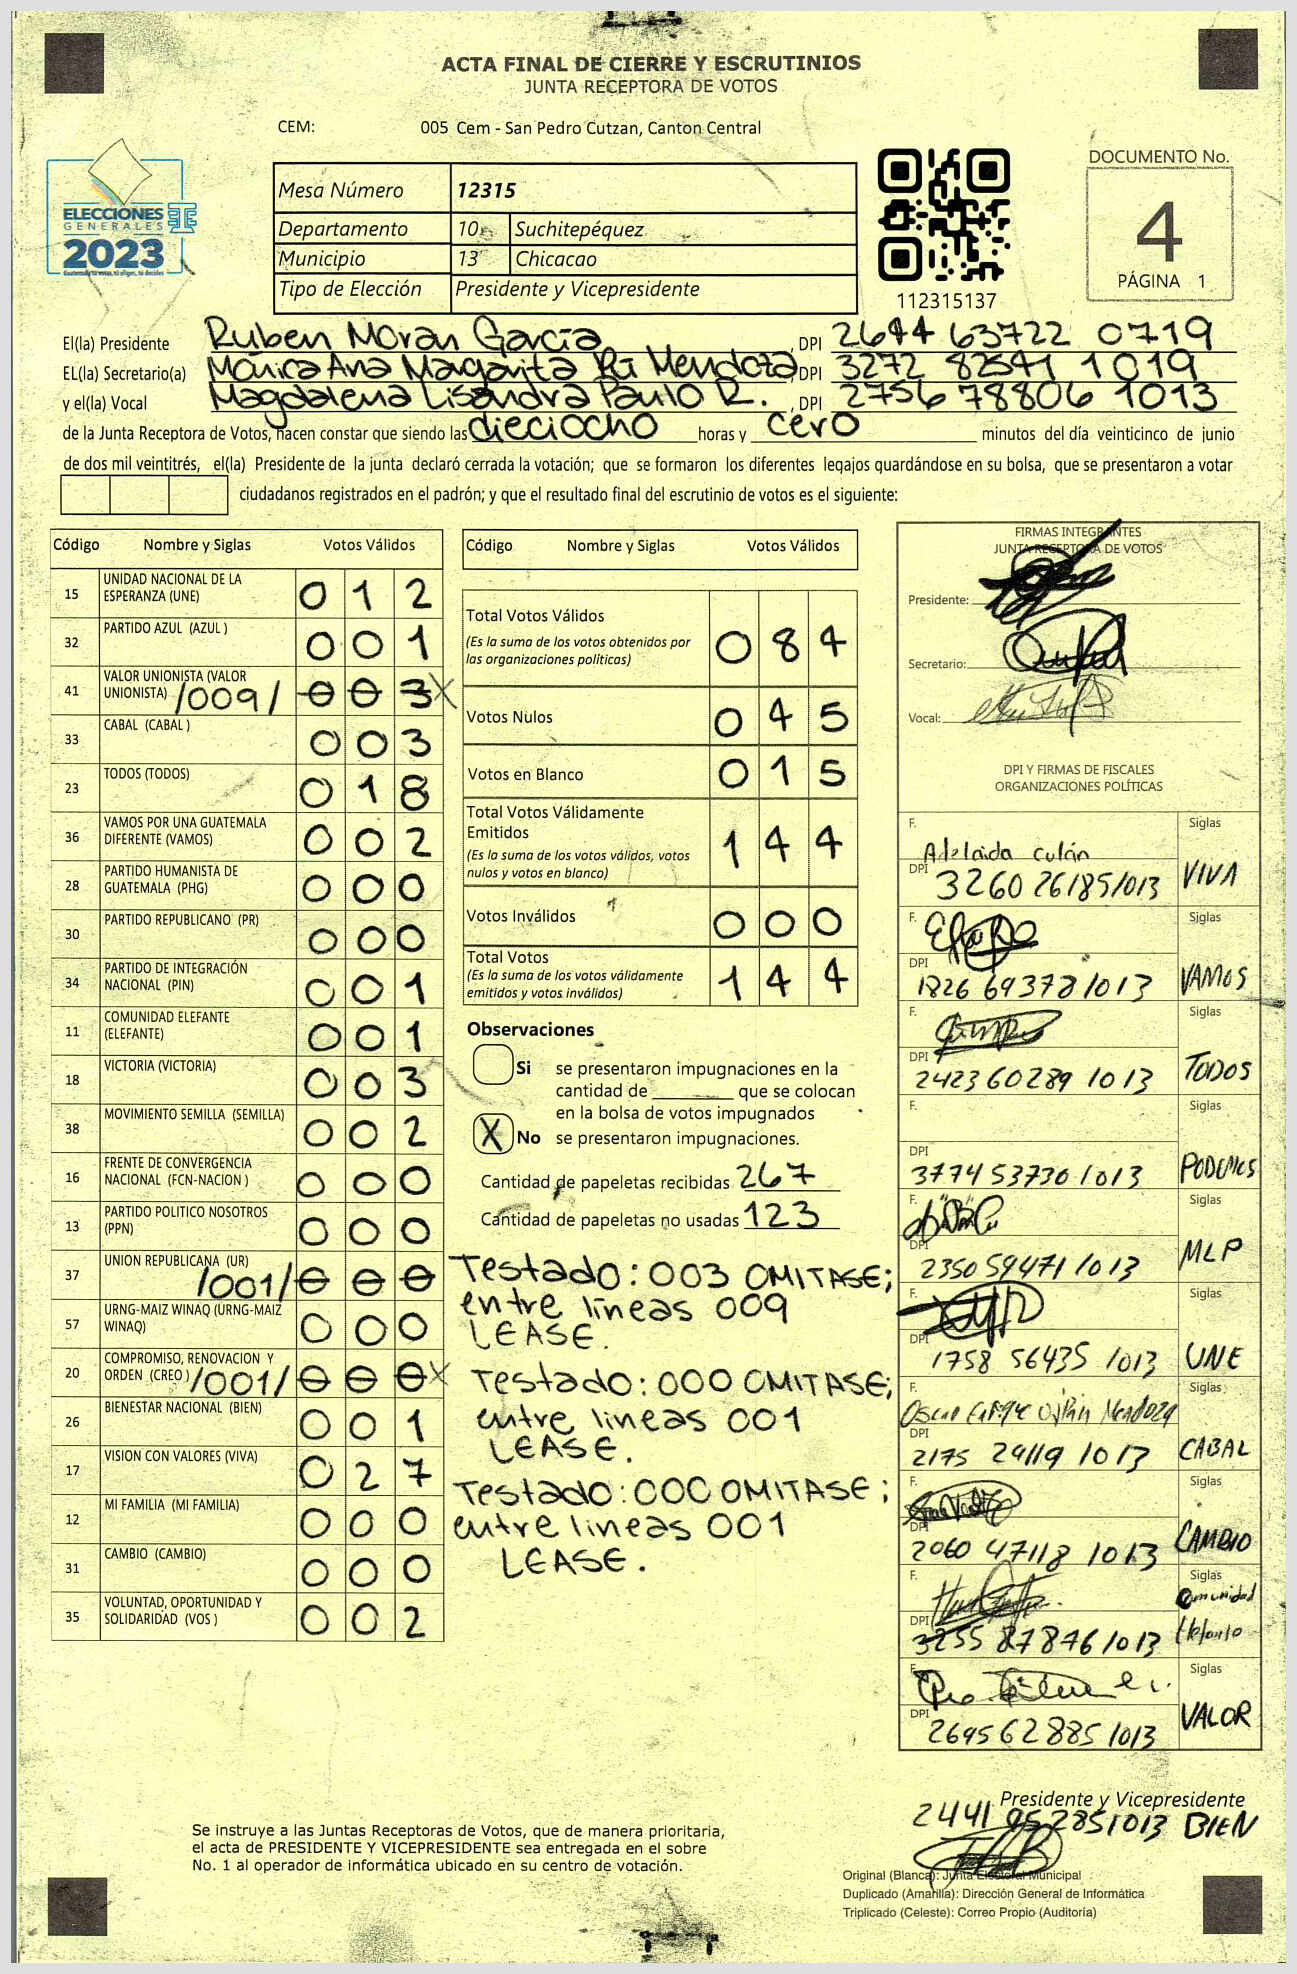 ACTA FINAL DE CIERRE Y ESCRUTINIOS
JUNTA RECEPTORA DE VOTOS
CEM: 005 Cem - San Pedro Cutzan, Canton Central
ELECCIONES
GENERALES
2023
Mesa Número 12315
Departamento 10 Suchitepéquez
Municipio 13 Chicacao
Tipo de Elección Presidente y Vicepresidente
112315137
DOCUMENTO No.
4
PÁGINA 1
El(la) Presidente Ruben Moran García, DPI 2644 63722 0719
EL(la) Secretario(a) Mónica Ana Margarita Mendoza, DPI 3272 82541 1019
y el(la) Vocal Magdalena Lisandra Paulo R., DPI 2756 78806 1013
de la Junta Receptora de Votos, hacen constar que siendo las dieciocho horas y cero minutos del día veinticinco de junio
de dos mil veintitrés, el(la) Presidente de la junta declaró cerrada la votación; que se formaron los diferentes legajos guardándose en su bolsa, que se presentaron a votar
ciudadanos registrados en el padrón; y que el resultado final del escrutinio de votos es el siguiente:
Código Nombre y Siglas Votos Válidos
15 UNIDAD NACIONAL DE LA ESPERANZA (UNE) 0 1 2
32 PARTIDO AZUL (AZUL ) 0 0 1
41 VALOR UNIONISTA (VALOR UNIONISTA) /009/ 0 0 3 X
33 CABAL (CABAL ) 0 0 3
23 TODOS (TODOS) 0 1 8
36 VAMOS POR UNA GUATEMALA DIFERENTE (VAMOS) 0 0 2
28 PARTIDO HUMANISTA DE GUATEMALA (PHG) 0 0 0
30 PARTIDO REPUBLICANO (PR) 0 0 0
34 PARTIDO DE INTEGRACIÓN NACIONAL (PIN) 0 0 1
11 COMUNIDAD ELEFANTE (ELEFANTE) 0 0 1
18 VICTORIA (VICTORIA) 0 0 3
38 MOVIMIENTO SEMILLA (SEMILLA) 0 0 2
16 FRENTE DE CONVERGENCIA NACIONAL (FCN-NACION ) 0 0 0
13 PARTIDO POLITICO NOSOTROS (PPN) 0 0 0
37 UNION REPUBLICANA (UR) /001/ 0 0 0
57 URNG-MAIZ WINAQ (URNG-MAIZ WINAQ) 0 0 0
20 COMPROMISO, RENOVACION Y ORDEN (CREO ) /001/ 0 0 0 X
26 BIENESTAR NACIONAL (BIEN) 0 0 1
17 VISION CON VALORES (VIVA) 0 2 7
12 MI FAMILIA (MI FAMILIA) 0 0 0
31 CAMBIO (CAMBIO) 0 0 0
35 VOLUNTAD, OPORTUNIDAD Y SOLIDARIDAD (VOS ) 0 0 2
Código Nombre y Siglas Votos Válidos
Total Votos Válidos 0 8 4
(Es la suma de los votos obtenidos por
las organizaciones politicas)
Votos Nulos 0 4 5
Votos en Blanco 0 1 5
Total Votos Válidamente
Emitidos 1 4 4
(Es la suma de los votos válidos, votos
nulos y votos en blanco)
Votos Inválidos 0 0 0
Total Votos 1 4 4
(Es la suma de los votos válidamente
emitidos y votos inválidos)
Observaciones
Si se presentaron impugnaciones en la
cantidad de ________ que se colocan
en la bolsa de votos impugnados
X No se presentaron impugnaciones.
Cantidad de papeletas recibidas 267
Cantidad de papeletas no usadas 123
Testado: 003 OMITASE;
entre líneas 009
LEASE.
Testado: 000 OMITASE;
entre lineas 001
LEASE.
Testado: 000 OMITASE;
entre lineas 001
LEASE.
FIRMAS INTEGRANTES
JUNTA RECEPTORA DE VOTOS
Presidente:
Secretario:
Vocal:
DPI Y FIRMAS DE FISCALES
ORGANIZACIONES POLÍTICAS
F. Adelaida Culán Siglas
DPI 3260 26185 1013 VIVA
F. Siglas
DPI 1826 69378 1013 VAMOS
F. Siglas
DPI 2423 60289 1013 TODOS
F. Siglas
DPI 3774 53730 1013 PODEMOS
F. Siglas
DPI 2350 59471 1013 MLP
F. Siglas
DPI 1758 56435 1013 UNE
F. Oscar Enrique Mendoza Siglas
DPI 2175 24119 1013 CABAL
F. Siglas
DPI 2060 47118 1013 CAMBIO
F. Siglas
DPI 3255 87876 1013 Comunidad Elefante
F. Siglas
DPI 2695 62885 1013 VALOR
Presidente y Vicepresidente
2441 95285 1013 BIEN
Se instruye a las Juntas Receptoras de Votos, que de manera prioritaria,
el acta de PRESIDENTE Y VICEPRESIDENTE sea entregada en el sobre
No. 1 al operador de informática ubicado en su centro de votación.
Original (Blanca): Junta Electoral Municipal
Duplicado (Amarilla): Dirección General de Informática
Triplicado (Celeste): Correo Propio (Auditoría)